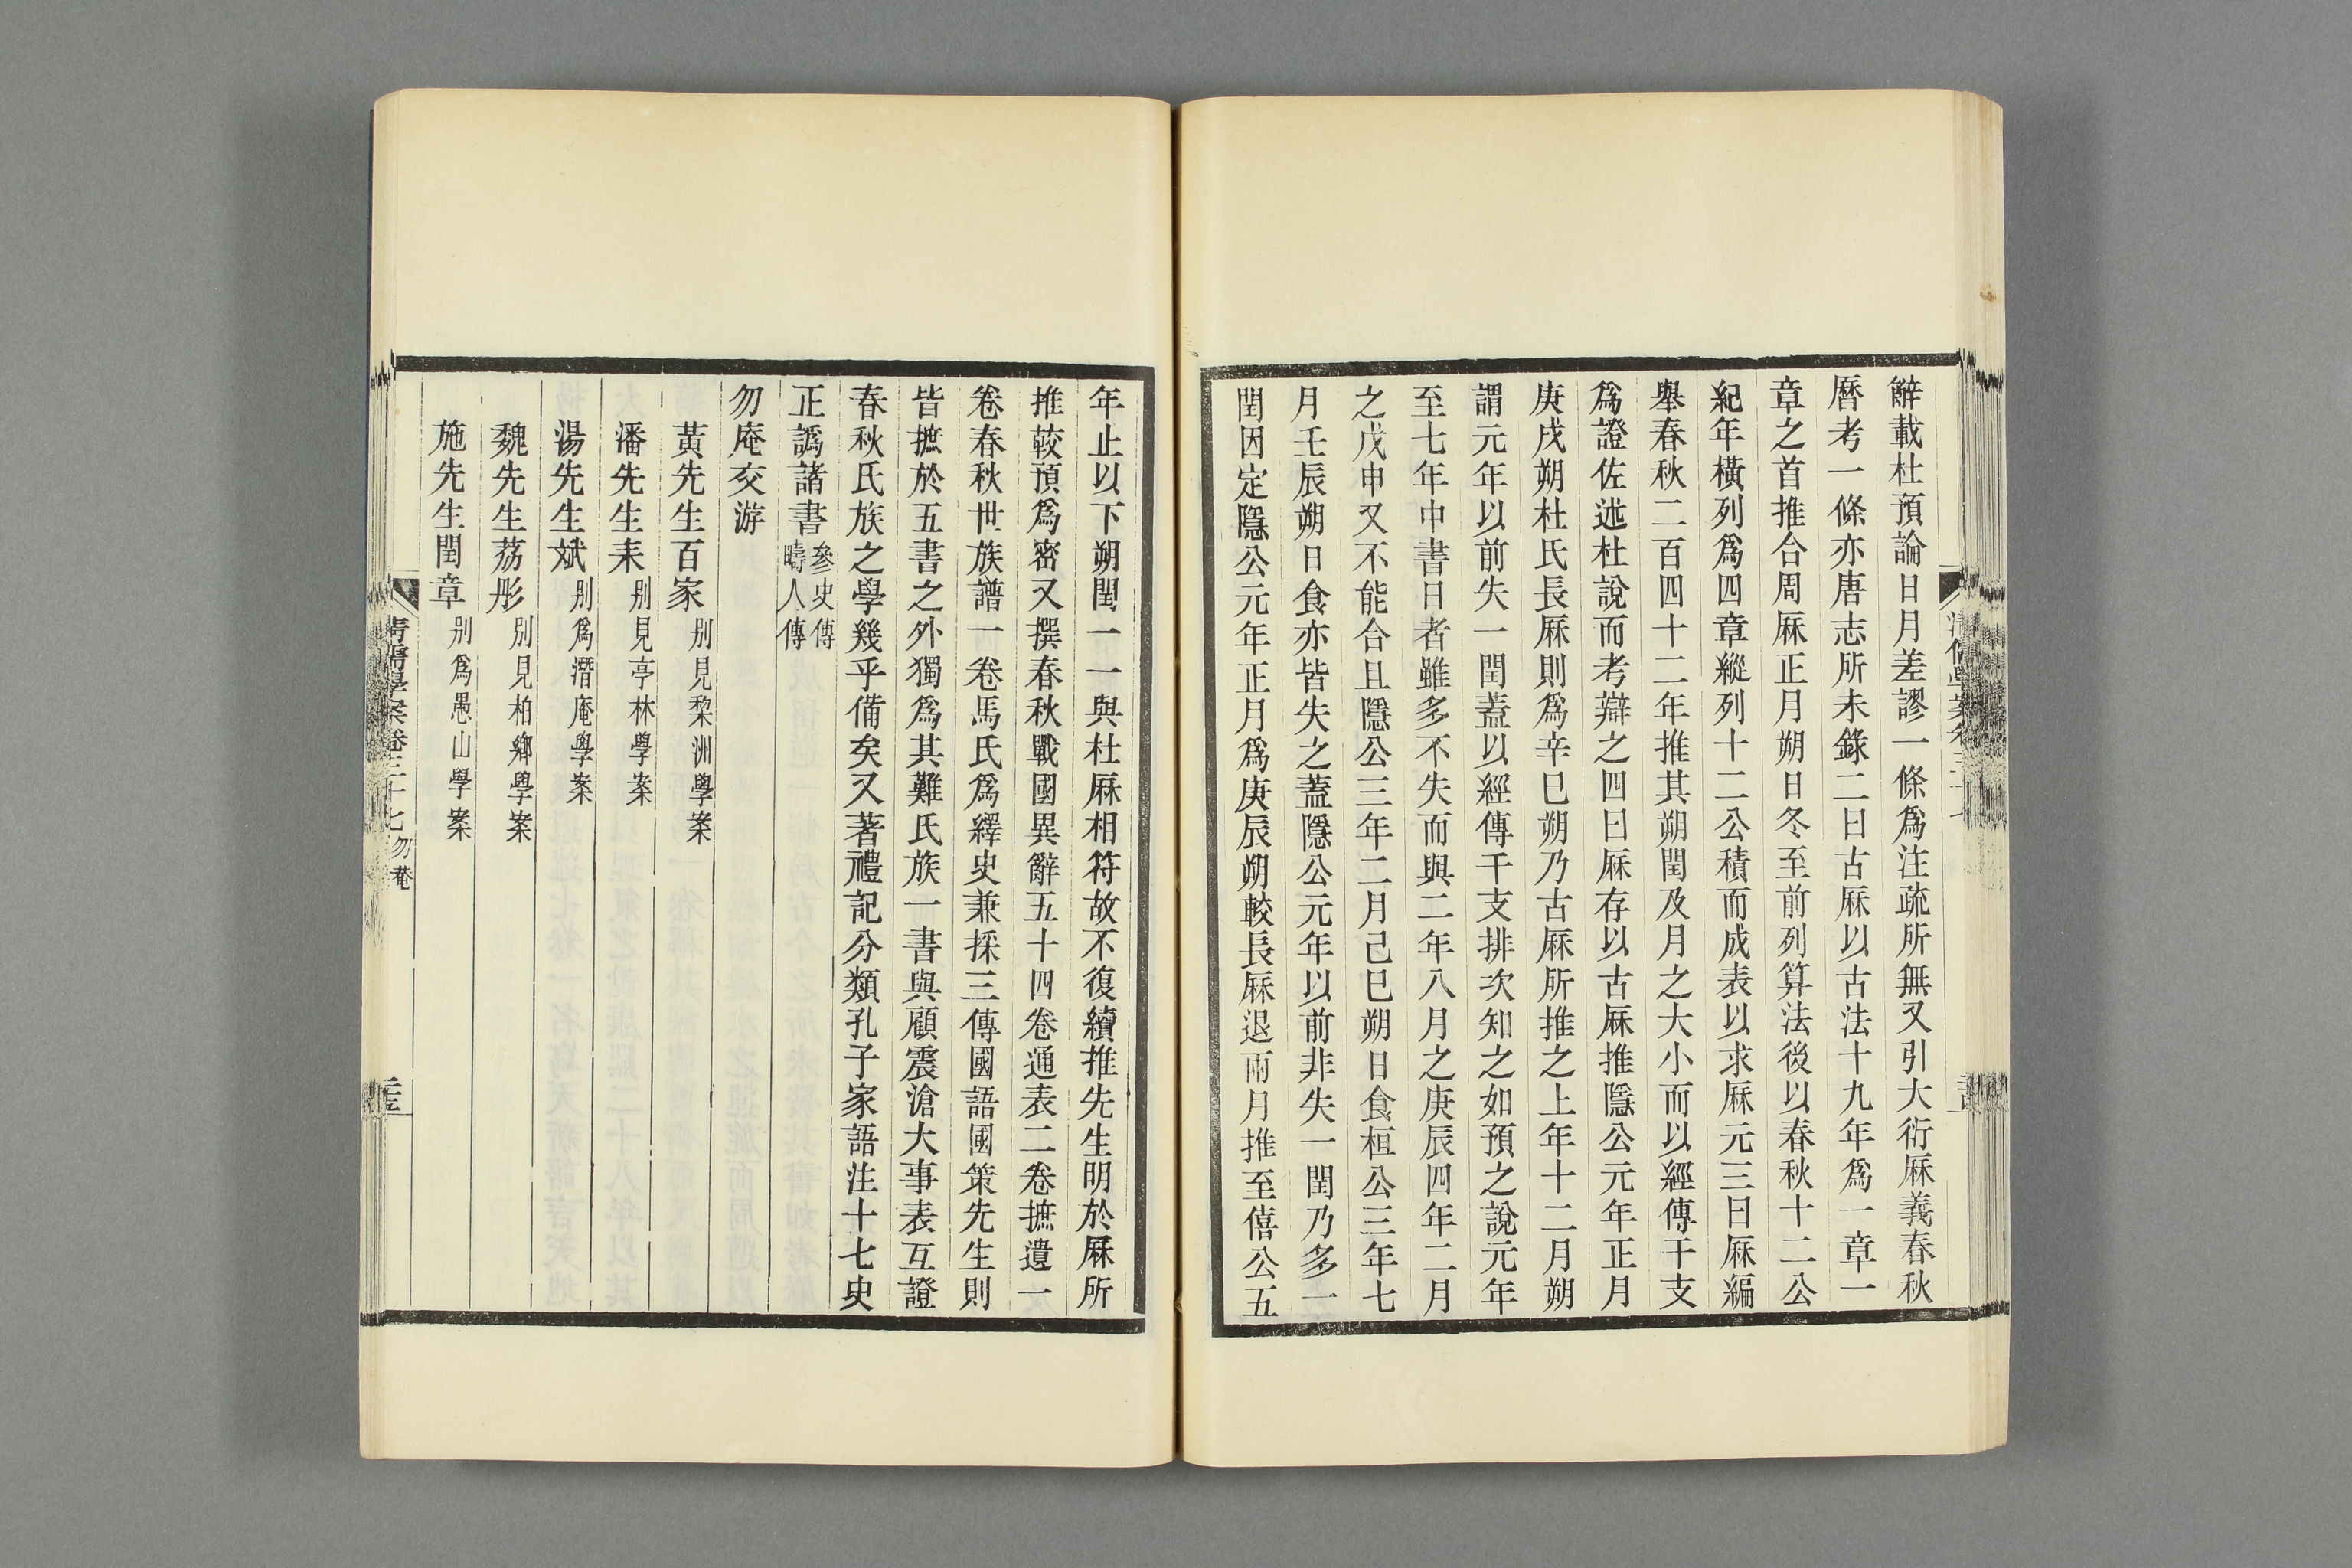 辭載杜預論日月差謬一條爲注疏所無又引大衍厤義春秋
曆考一條亦唐志所未錄二曰古厤以古法十九年爲一章一
章之首推合周厤正月朔日冬至前列算法後以春秋十二公
紀年橫列爲四章縱列十二公積而成表以求厤元三曰厤編
舉春秋二百四十二年推其朔閏及月之大小而以經傳干支
爲證佐述杜說而考辯之四曰厤存以古厤推隱公元年正月
庚戌朔杜氏長厤則爲辛巳朔乃古厤所推之上年十二月朔
謂元年以前失一閏蓋以經傳干支排次知之如預之說元年
至七年中書日者雖多不失而與二年八月之庚辰四年二月
之戊申又不能合且隱公三年二月己巳朔日食桓公三年七
月壬辰朔日食亦皆失之蓋隱公元年以前非失一閏乃多一
閏因定隱公元年正月爲庚辰朔較長厤退兩月推至僖公五
年止以下朔閏一一與杜厤相符故不復續推先生明於厤所
推較預爲密又撰春秋戰國異辭五十四卷通表二卷摭遺一
卷春秋世族譜一卷馬氏爲繹史兼採三傳國語國策先生則
皆摭於五書之外獨爲其難氏族一書與顧震滄大事表互證
春秋氏族之學幾乎備矣又著禮記分類孔子家語注十七史
正譌諸書參史傳疇人傳
勿庵交游
黃先生百家別見棃洲學案
潘先生耒別見亭林學案
湯先生斌別爲潛庵學案
魏先生荔彤別見柏鄉學案
施先生閏章別爲愚山學案
清儒學案卷三十七 勿菴